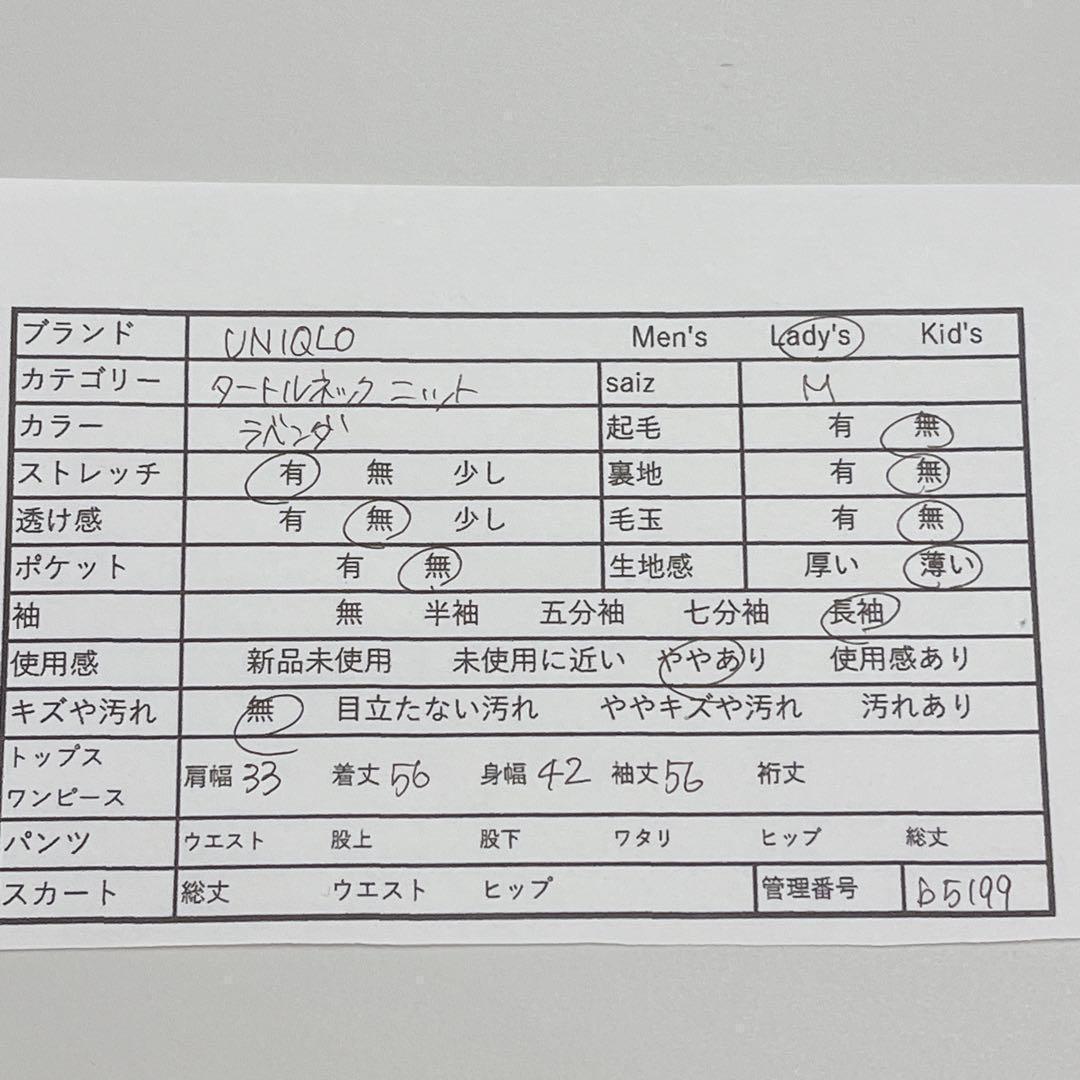 ブランド UNIQLO Men's Lady's Kid's
カテゴリー タートルネックニット saiz M
カラー ラベンダー 起毛 有 無
ストレッチ 有 無 少し 裏地 有 無
透け感 有 無 少し 毛玉 有 無
ポケット 有 無 生地感 厚い 薄い
袖 無 半袖 五分袖 七分袖 長袖
使用感 新品未使用 未使用に近い ややあり 使用感あり
キズや汚れ 無 目立たない汚れ ややキズや汚れ 汚れあり
トップス
ワンピース 肩幅 33 着丈 56 身幅 42 袖丈 56 裄丈
パンツ ウエスト 股上 股下 ワタリ ヒップ 総丈
スカート 総丈 ウエスト ヒップ 管理番号 b5199